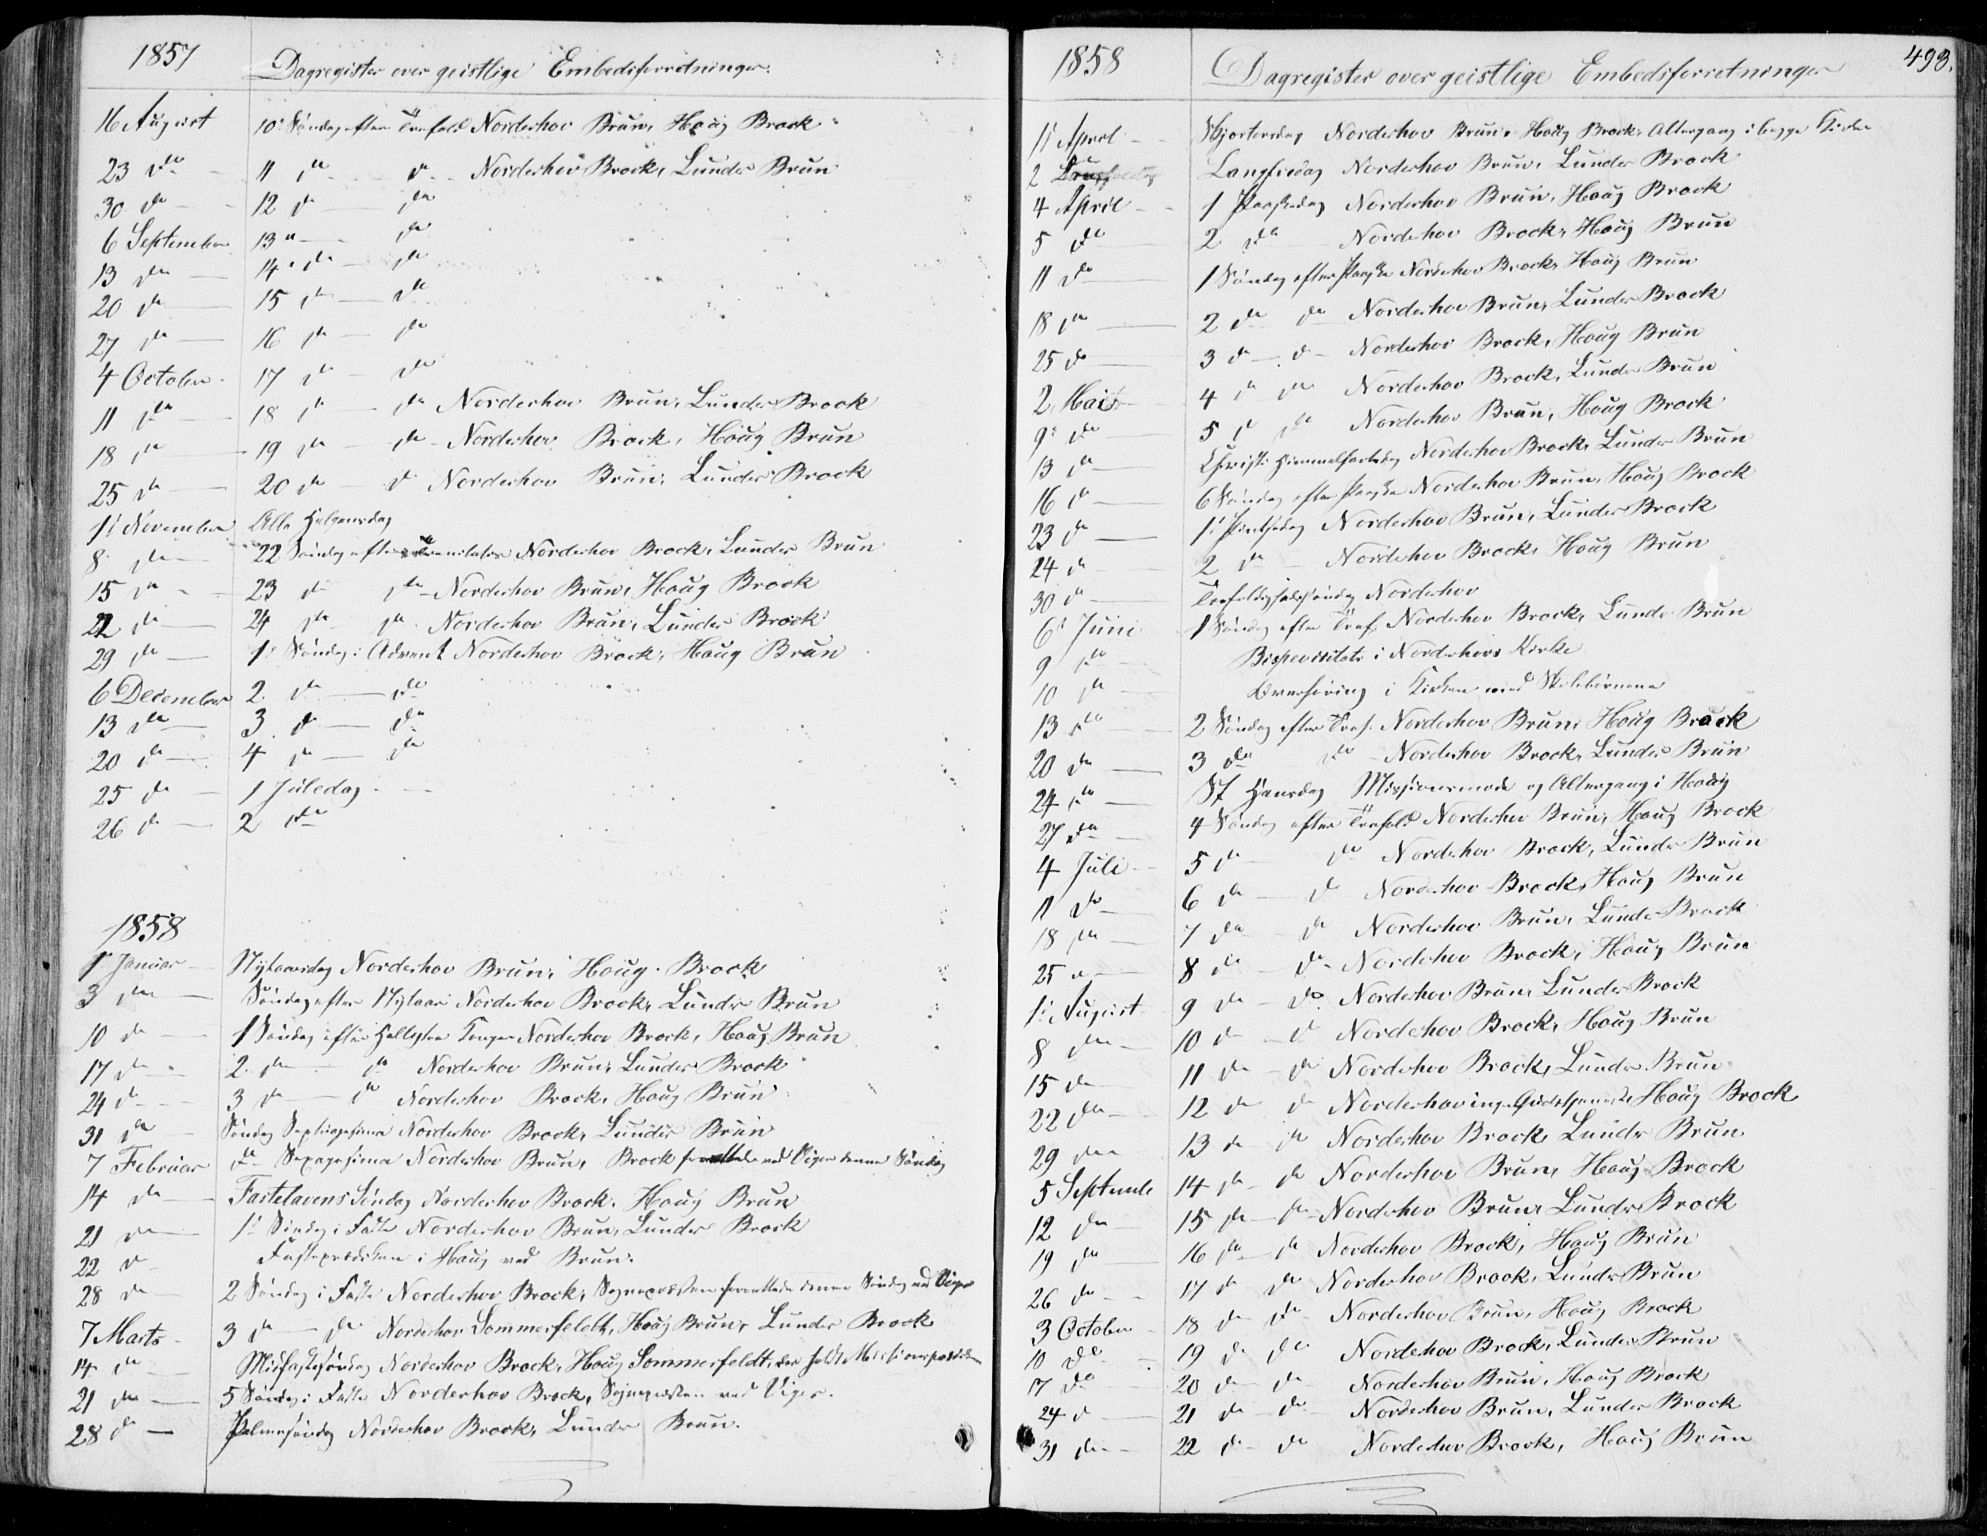 1857
Dagregister over geistlige Embedsforretninger.
16 August 10. Søndag efter Trefold Norderhov Brun, Houg Brock
23 do 11 do do Norderhov Brock, Lunder Brun
30 do 12 do do
6 September 13 " do
13 do 14 do do
20 do 15 do do
27 do 16 do do
4 October 17 do do
11 do 18 do do Norderhov Brun, Lunder Brock
18 do 19 do do Norderhov Brock, Houg Brun
25 do 20 do do Norderhov Brun, Lunder Brock
1. November Alle Helgensdag
8. do 22 Søndag efter Trinitatis Norderhov Brock, Lunder Brun
15 do 23 do do Norderhov Brun, Houg Brock
22 do 24 do do Norderhov Brun, Lunder Brock
29 do 1. Søndag i Advent Norderhov Brock, Houg Brun
6 December 2 do do
13 do 3 do do
20 do 4 do do
25 do 1 Juledag
26 do 2 do
1858
1. Januar Nytaarsdag Norderhov Brun, Houg Brock
3 do Søndag efter Nytaar Norderhov Brock, Lunder Brun
10 do 1 Søndag efter Helligtre Konger Norderhov Brock, Houg Brun
17 do 2 do do Norderhov Brun, Lunder Brock
24 do 3 do do Norderhov Brock, Houg Brun
31 do Søndag Septuagesima Norderhov Brock, Lunder Brun
7 Februar do Sexagesima Norderhov Brun, Brock forrettede ved Viger denne Søndag
14 do Fastelavens Søndag Norderhov Brock, Houg Brun
21 do 1. Søndag i Faste Norderhov Brun, Lunder Brock
22 do Fasteprædiken i Houg ved Brun.
28 do 2 Søndag i Faste Norderhov Brock, Sognepræsten forrettede denne Søndag ved Viger
7 Marts 3 do do Norderhov Sommerfeldt, Houg Brun, Lunder Brock
14 do Midfastesøndag Norderhov Brock, Houg Sommerfeldt, der holdt Missionsprædiken
21 do 5 Søndag i Faste Norderhov Brock, Sognepræsten ved Viger.
28 do Palmesøndag Norderhov Brock, Lunder Brun.
1858
Dagregister over geistlige Embedsforretninger
493.
1. April Skjærtorsdag Norderhov Brun, Houg Brock, Altergang i begge Kirker
2 Langfredag Norderhov Brun, Lunder Brock
4 April 1 Paaskedag Norderhov Brun, Houg Brock
5 do 2 do Norderhov Brock, Houg Brun
11 do 1 Søndag efter Paaske Norderhov Brock, Houg Brun
18 do 2 do do Norderhov Brun, Lunder Brock
25 do 3 do do Norderhov Brock, Houg Brun
2 Mai 4 do do Norderhov Brock, Lunder Brun
9. do 5 do do Norderhov Brun, Houg Brock
13 do Christi Himmelfartsdag Norderhov Brock, Lunder Brun
16 do 6 Søndag efter Paaske Norderhov Brun, Houg Brock
23 do 1. Pintsedag Norderhov Brun, Lunder Brock
24 do 2 do Norderhov Brock, Houg Brun
30 do Trefoldighedssøndag Norderhov
6. Juni 1 Søndag efter Tref. Norderhov Brock, Lunder Brun
9 do Bispevisitats i Norderhovs Kirke
10 do Overhøring i Kirken med Skolebørnene
13 do 2 Søndag efter Tref. Norderhov Brun, Houg Brock
20 do 3 do do Norderhov Brock, Lunder Brun
24 do St Hansdag Missionsmøde og Altergang i Houg
27 do 4 Søndag efter Trefold Norderhov Brun, Houg Brock
4 Juli 5 do do Norderhov Brock, Lunder Brun
11 do 6 do do Norderhov Brock, Houg Brun
18 do 7 do do Norderhov Brun, Lunder Brock
25 " 8 do do Norderhov Brock, Houg Brun
1. August 9 do do Norderhov Brun, Lunder Brock
8 do 10 do do Norderhov Brock, Houg Brun
15 do 11 do do Norderhov Brock, Lunder Brun
22 do 12 do do Norderhov ingen Gudstjeneste Houg Brock
29 do 13 do do Norderhov Brock, Lunder Brun
5 Septembr 14 do do Norderhov Brun, Houg Brock
12 do 15 do do Norderhov Brun, Lunder Brock
19 do 16 do do Norderhov Brock, Houg Brun
26 do 17 do do Norderhov Brock, Lunder Brun
3 October 18 do do Norderhov Brun, Houg Brock
10 do 19 do do Norderhov Brock, Lunder Brun
17 do 20 do do Norderhov Brun, Houg Brock
24 do 21 do do Norderhov Brun, Lunder Brock
31 do 22 do do Norderhov Brock, Houg Brun